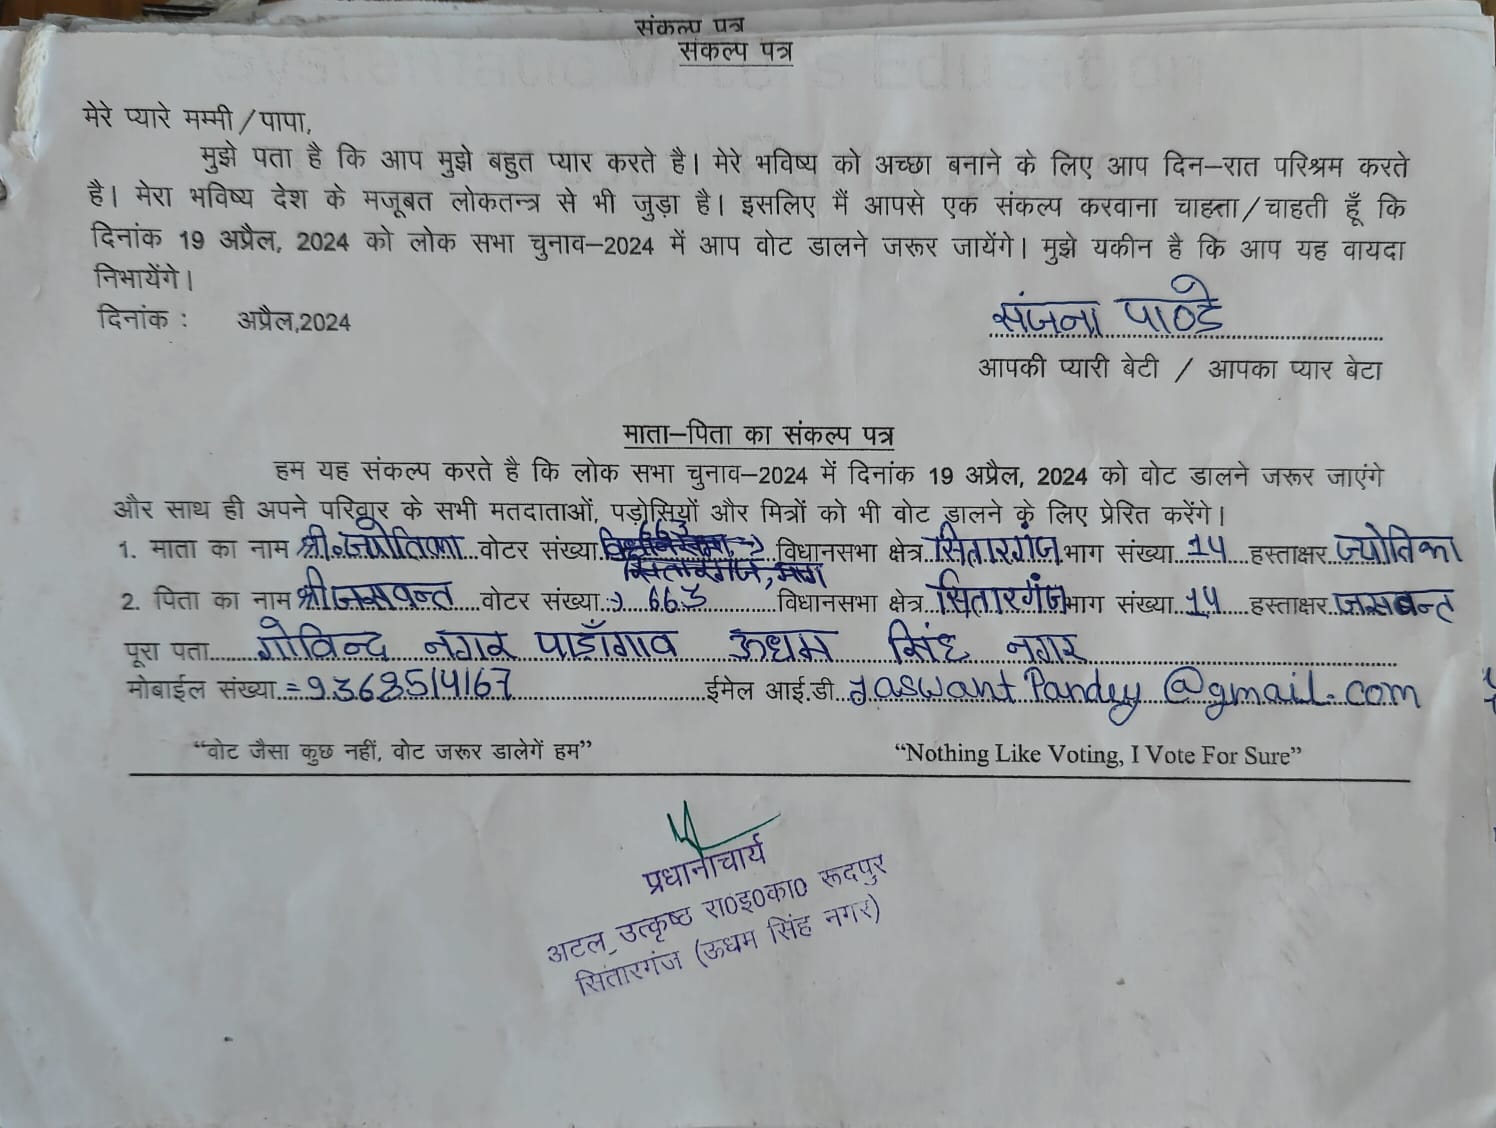 संकल्प पत्र
संकल्प पत्र
मेरे प्यारे मम्मी/पापा,
मुझे पता है कि आप मुझे बहुत प्यार करते है। मेरे भविष्य को अच्छा बनाने के लिए आप दिन–रात परिश्रम करते
है। मेरा भविष्य देश के मजूबत लोकतन्त्र से भी जुड़ा है। इसलिए मैं आपसे एक संकल्प करवाना चाहता/चाहती हूँ कि
दिनांक 19 अप्रैल, 2024 को लोक सभा चुनाव–2024 में आप वोट डालने जरूर जायेंगे। मुझे यकीन है कि आप यह वायदा
निभायेंगे।
दिनांक : अप्रैल,2024
संजना पाण्डे
आपकी प्यारी बेटी / आपका प्यार बेटा
माता–पिता का संकल्प पत्र
हम यह संकल्प करते है कि लोक सभा चुनाव–2024 में दिनांक 19 अप्रैल, 2024 को वोट डालने जरूर जाएंगे
और साथ ही अपने परिवार के सभी मतदाताओं, पड़ोसियों और मित्रों को भी वोट डालने के लिए प्रेरित करेंगे।
1. माता का नाम श्री. ज्योतिका वोटर संख्या 663 विधानसभा क्षेत्र सितारगंज भाग संख्या 14 हस्ताक्षर ज्योतिका
2. पिता का नाम श्री जसवन्त वोटर संख्या → 663 विधानसभा क्षेत्र सितारगंज भाग संख्या 14 हस्ताक्षर जसबन्त
पूरा पता गोविन्द नगर पाडाँगाव ऊधम सिंह नगर
मोबाईल संख्या = 9368514167 ईमेल आई.डी. Jaswant Pandey @gmail.com
“वोट जैसा कुछ नहीं, वोट जरूर डालेगें हम” “Nothing Like Voting, I Vote For Sure”
प्रधानाचार्य
अटल उत्कृष्ट रा0इ0का0 रूदपुर
सितारगंज (ऊधम सिंह नगर)